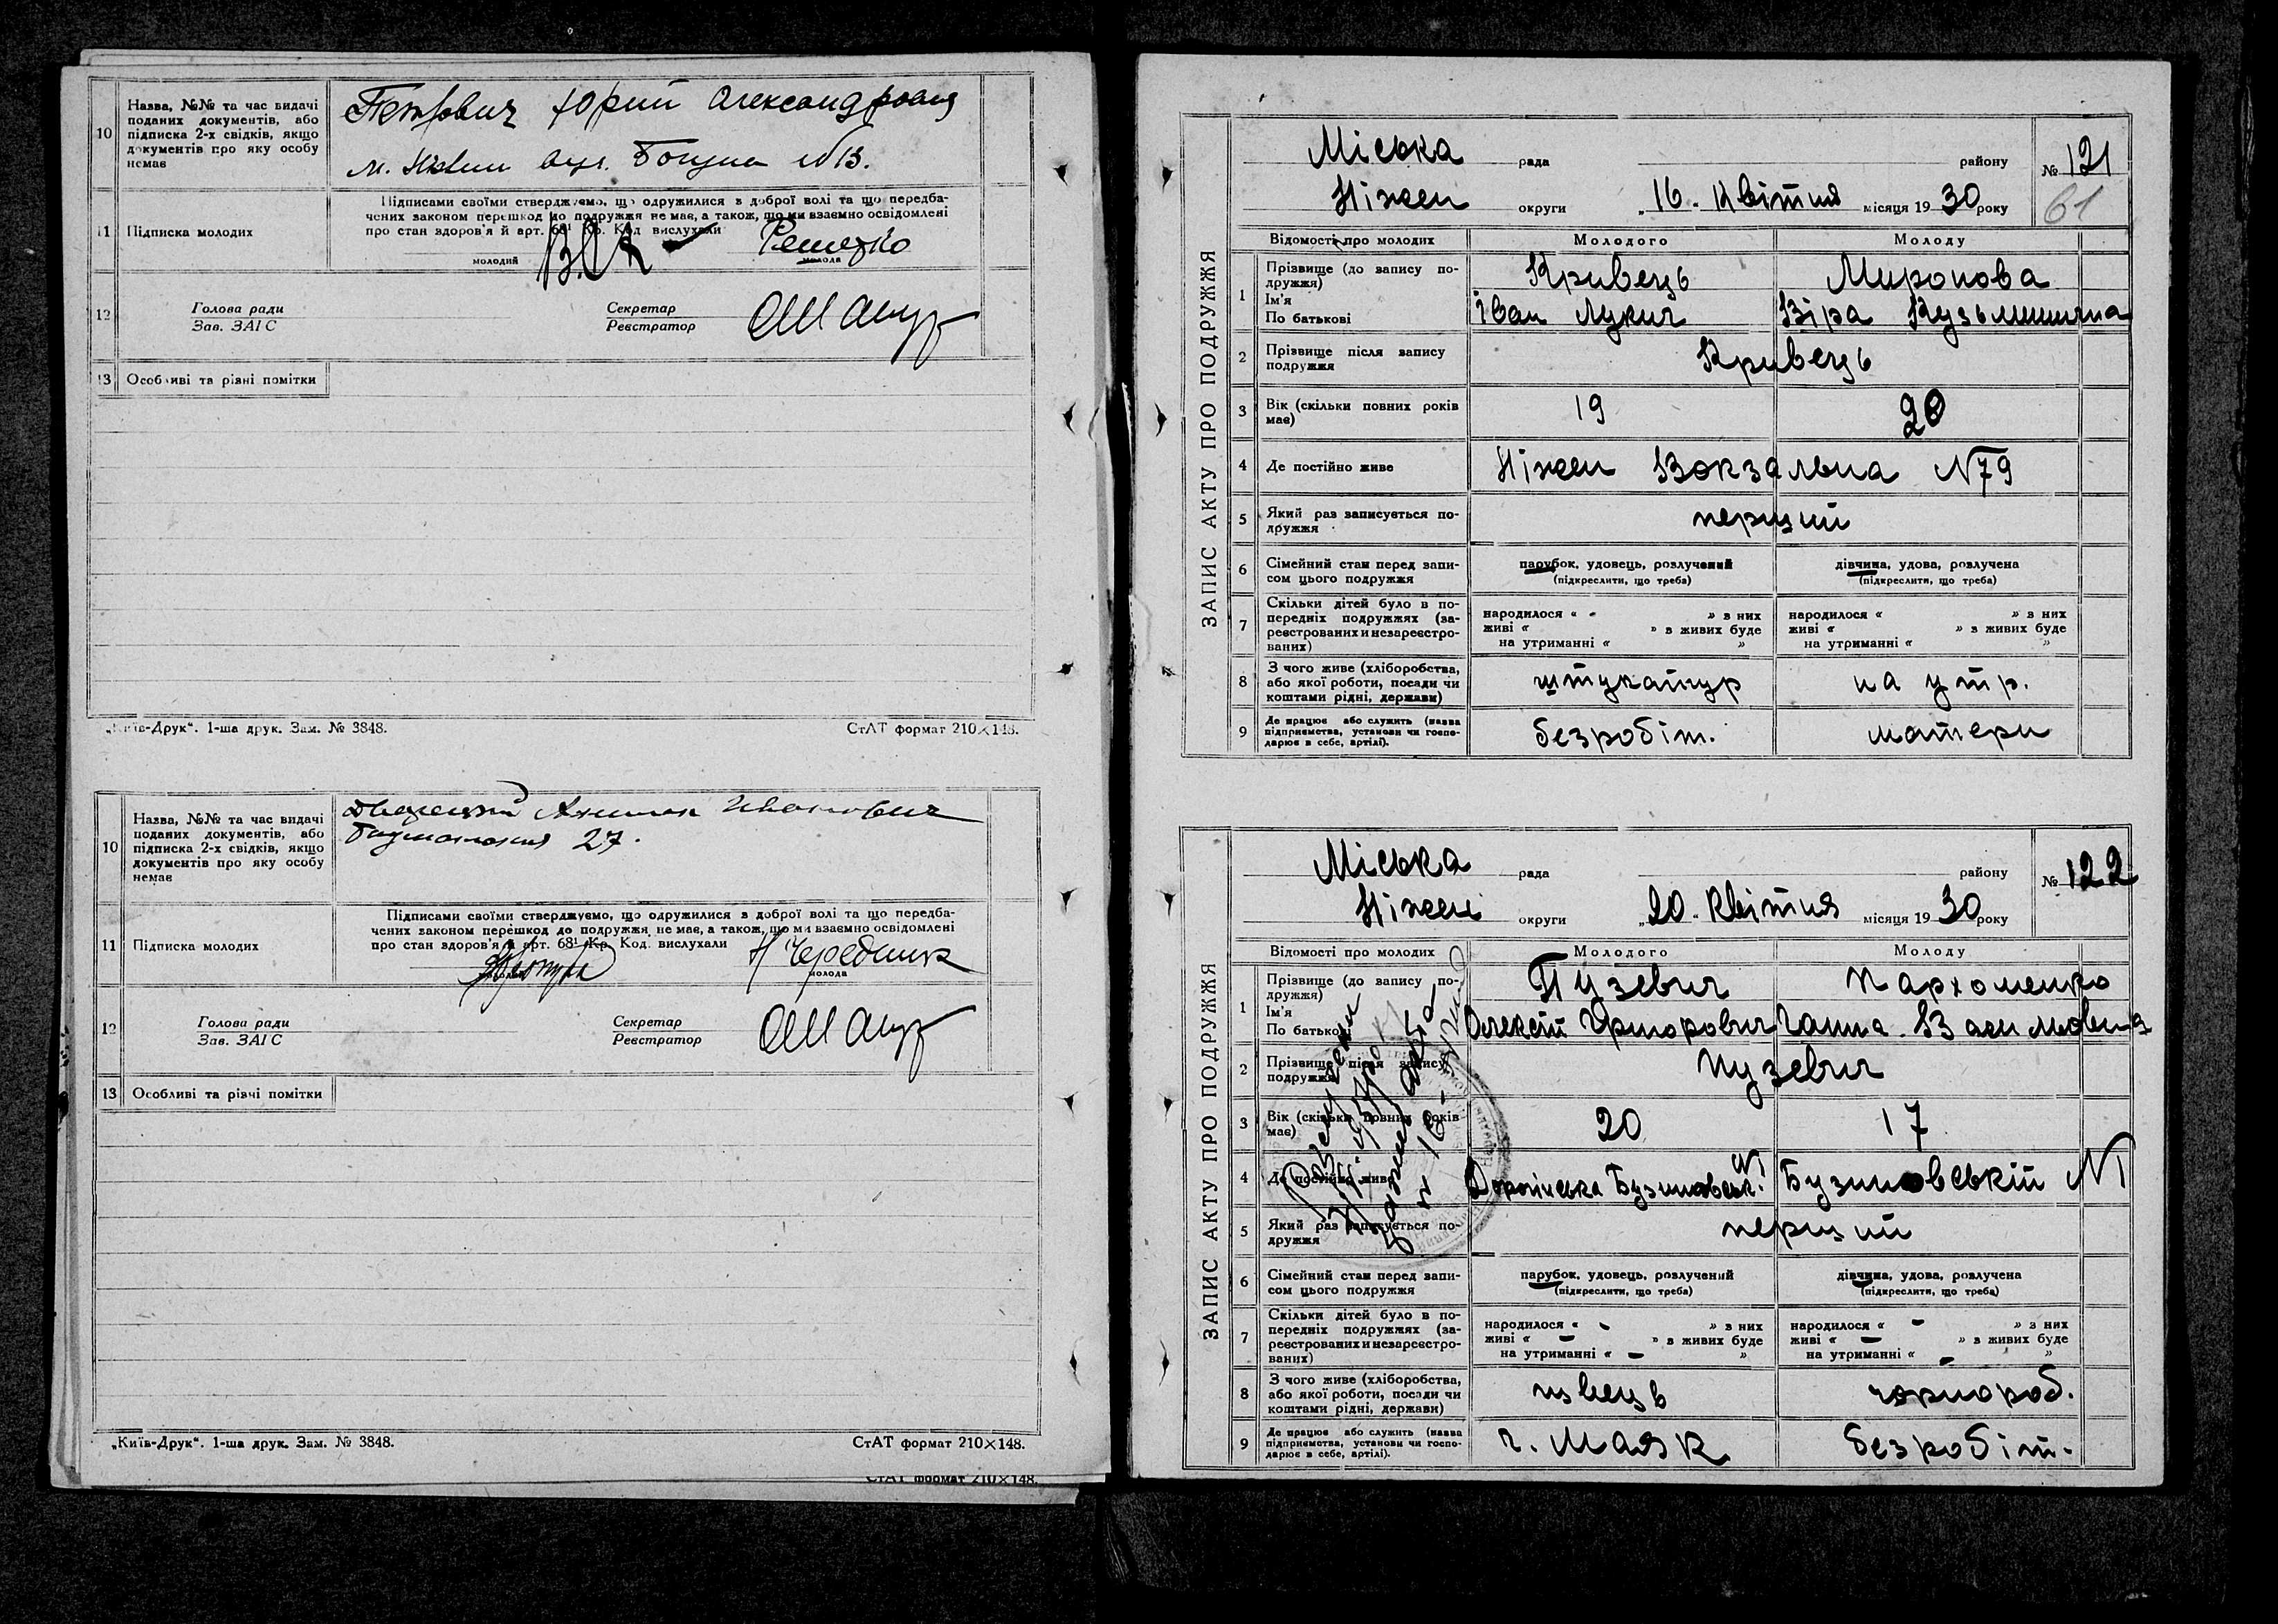 10 Назва, №№ та час видачі поданих документів, або підписка 2-х свідків, якщо документів про яку особу немає
Петрович Юрий Александрович
м. Ніжин вул. Богуна №13.
11 Підписка молодих
Підписами своїми стверджуємо, що одружилися з доброї волі та що передба-
чених законом перешкод до подружжя не має, а також, що ми взаємно освідомлені
про стан здоров'я й арт. 68¹ Кр. Код вислухали
молодий
молода
12 Голова ради
Зав. ЗАГС
Секретар
Реєстратор
13 Особливі та різні помітки
„Київ-Друк“. 1-ша друк. Зам. № 3848.
СтАТ формат 210×148.
10 Назва, №№ та час видачі поданих документів, або підписка 2-х свідків, якщо документів про яку особу немає
Иванович
27.
11 Підписка молодих
Підписами своїми стверджуємо, що одружилися з доброї волі та що передба-
чених законом перешкод до подружжя не має, а також, що ми взаємно освідомлені
про стан здоров'я й арт. 68¹ Кр. Код. вислухали
молодий
Н Чередник
молода
12 Голова ради
Зав. ЗАГС
Секретар
Реєстратор
13 Особливі та різні помітки
„Київ-Друк“. 1-ша друк. Зам. № 3848.
СтАТ формат 210×148.
СтАТ формат 210×148.
ЗАПИС АКТУ ПРО ПОДРУЖЖЯ
Міська рада району № 121
Ніжен округи „16. Квітня місяця 1930 року
61
Відомості про молодих Молодого Молоду
1 Прізвище (до запису по-
дружжя) Кривець Миронова
Ім'я
По батькові Іван Лукич Віра Кузьминична
2 Прізвище після запису
подружжя Кривець
3 Вік (скільки повних років
має) 19 20
4 Де постійно живе Ніжен Вокзальна №79
5 Який раз записується по-
дружжя перший
6 Сімейний стан перед запи-
сом цього подружжя парубок, удовець, розлучений дівчина, удова, розлучена
(підкреслити, що треба) (підкреслити, що треба)
7 Скільки дітей було в по-
передніх подружжях (за-
реєстрованих и незареєстро-
ваних)
народилося « » з них народилося « » з них
живі « » з живих буде живі « » з живих буде
на утриманні « » на утриманні « »
8 З чого живе (хліборобства,
або якої роботи, посади чи
коштами рідні, держави) штукатур на утр.
9 Де працює або служить (назва
підприємства, установи чи госпо-
дарює в себе, артілі). безробіт. матери
ЗАПИС АКТУ ПРО ПОДРУЖЖЯ
Міська рада району № 122
Ніжен округи „20. Квітня місяця 1930 року
Відомості про молодих Молодого Молоду
1 Прізвище (до запису по-
дружжя) Пузевич Пархоменко
Ім'я
По батькові Олексій Григорович Ганна Васильовна
2 Прізвище після запису
подружжя Пузевич
3 Вік (скільки повних років
має) 20 17
4 Де постійно живе Бузиновськ. №1 Бузиновській №1
5 Який раз записується по-
дружжя перший
6 Сімейний стан перед запи-
сом цього подружжя парубок, удовець, розлучений дівчина, удова, розлучена
(підкреслити, що треба) (підкреслити, що треба)
7 Скільки дітей було в по-
передніх подружжях (за-
реєстрованих и незареєстро-
ваних)
народилося « - » з них народилося « - » з них
живі « - » з живих буде живі « - » з живих буде
на утриманні « - » на утриманні « - »
8 З чого живе (хліборобства,
або якої роботи, посади чи
коштами рідні, держави) швець чорнороб.
9 Де працює або служить (назва
підприємства, установи чи госпо-
дарює в себе, артілі). г. Маяк безробіт.